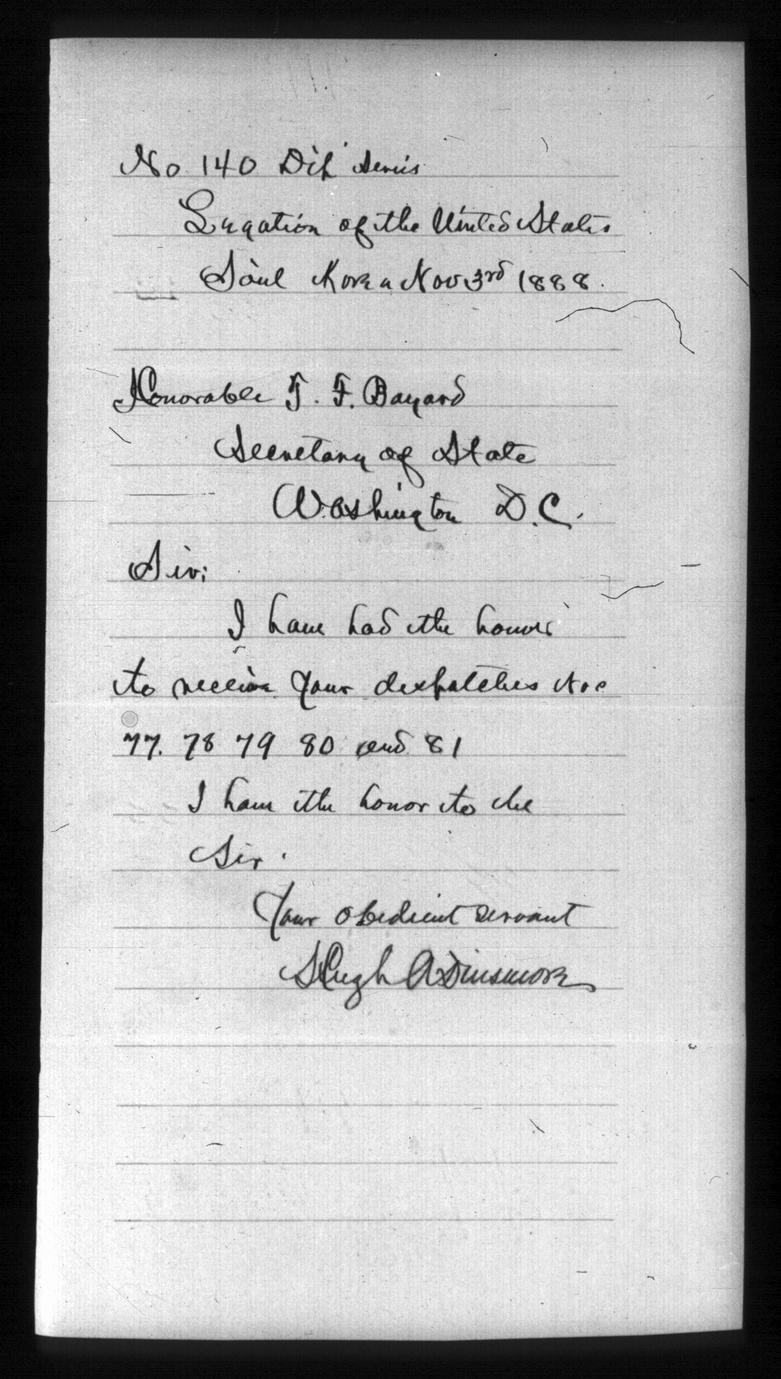 No 140 Dip' Series
Legation of the United States
Söul Korea Nov 3rd 1888.
Honorable T. F. Bayard
Secretary of State
Washington D.C.
Sir;
I have had the honor
to receive your despatches Nos
77. 78 79 80 and 81
I have the honor to be
Sir.
Your obedient servant
Hugh A Dinsmore